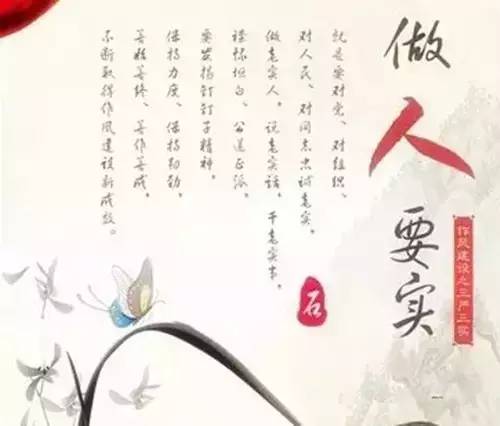 做人要实
作风建设之三严三实
就是要对党、对组织、
对人民、对同志忠诚老实。
做老实人。说老实话。干老实事。
襟怀坦白、公道正派。
要发扬钉钉子精神。
保持力度、保持韧劲。
善始善终、善作善成。
不断取得作风建设新成效。
石